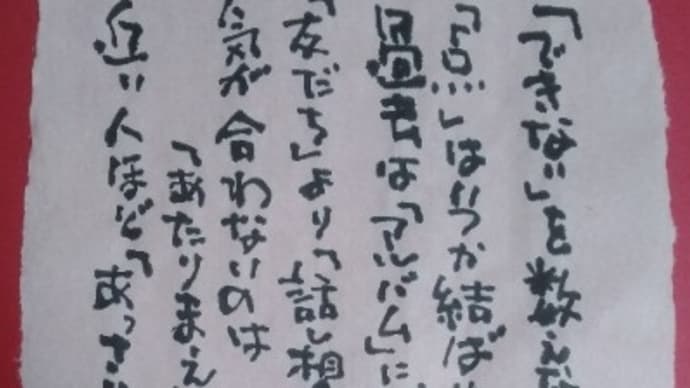 「できない」を数えな
「点」はいつか結ば
過去は「アルバム」に
「友だち」より「話し相
気が合わないのは
「あたりまえ
近い人ほど「あっさり